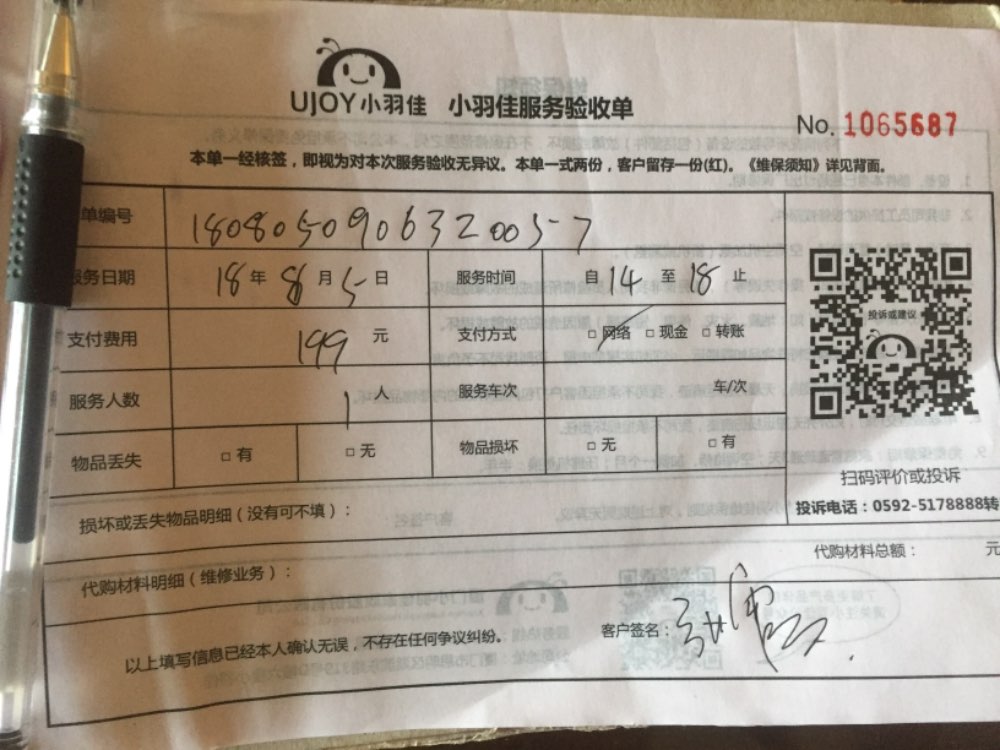 UJOY小羽佳 小羽佳服务验收单
No. 1065687
本单一经核签，即视为对本次服务验收无异议。本单一式两份，客户留存一份(红)。《维保须知》详见背面。
单编号 180805090632005-7
服务日期 18年8月5日 服务时间 自14至18止
支付费用 199元 支付方式 □网络 □现金 □转账
服务人数 1人 服务车次 车/次
物品丢失 □有 □无 物品损坏 □无 □有
投诉或建议
扫码评价或投诉
投诉电话：0592-5178888转
损坏或丢失物品明细（没有可不填）：
代购材料总额： 元
代购材料明细（维修业务）：
客户签名：
以上填写信息已经本人确认无误，不存在任何争议纠纷。